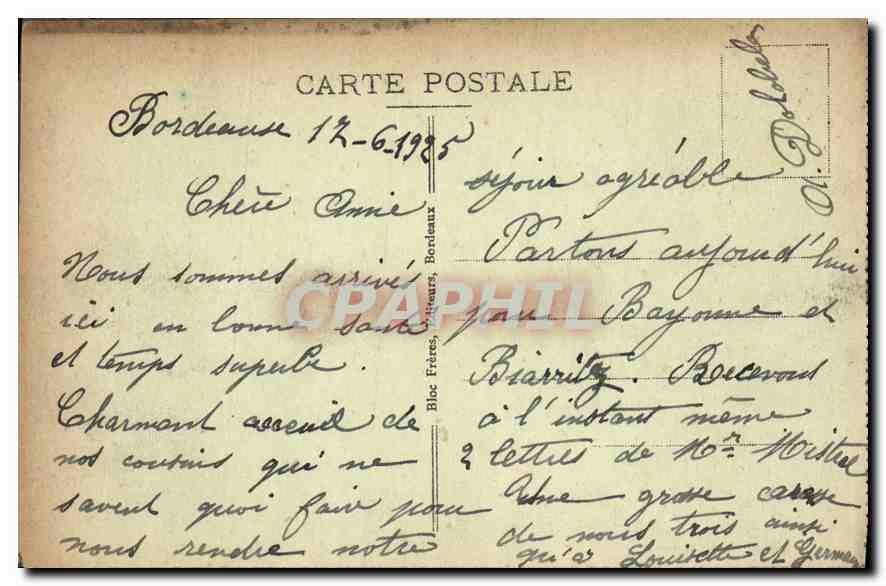 CARTE POSTALE
Bordeause 12-6-1925
Chère Annie
Nous sommes arrivés
ici en bonne santé
et temps superbe.
Charmant acceuil de
nos cousins qui ne
savent quoi faire pour
nous rendre notre
séjour agréable
Partons aujourd'hui
pour Bayonne et
Biarritz. Recevons
à l'instant même
2 lettres de Mr Mistral
Une grosse caresse
de nous trois ainsi
qu'à Louisette et Germain
Bloc Frères, Editeurs, Bordeaux
CPAPHIL